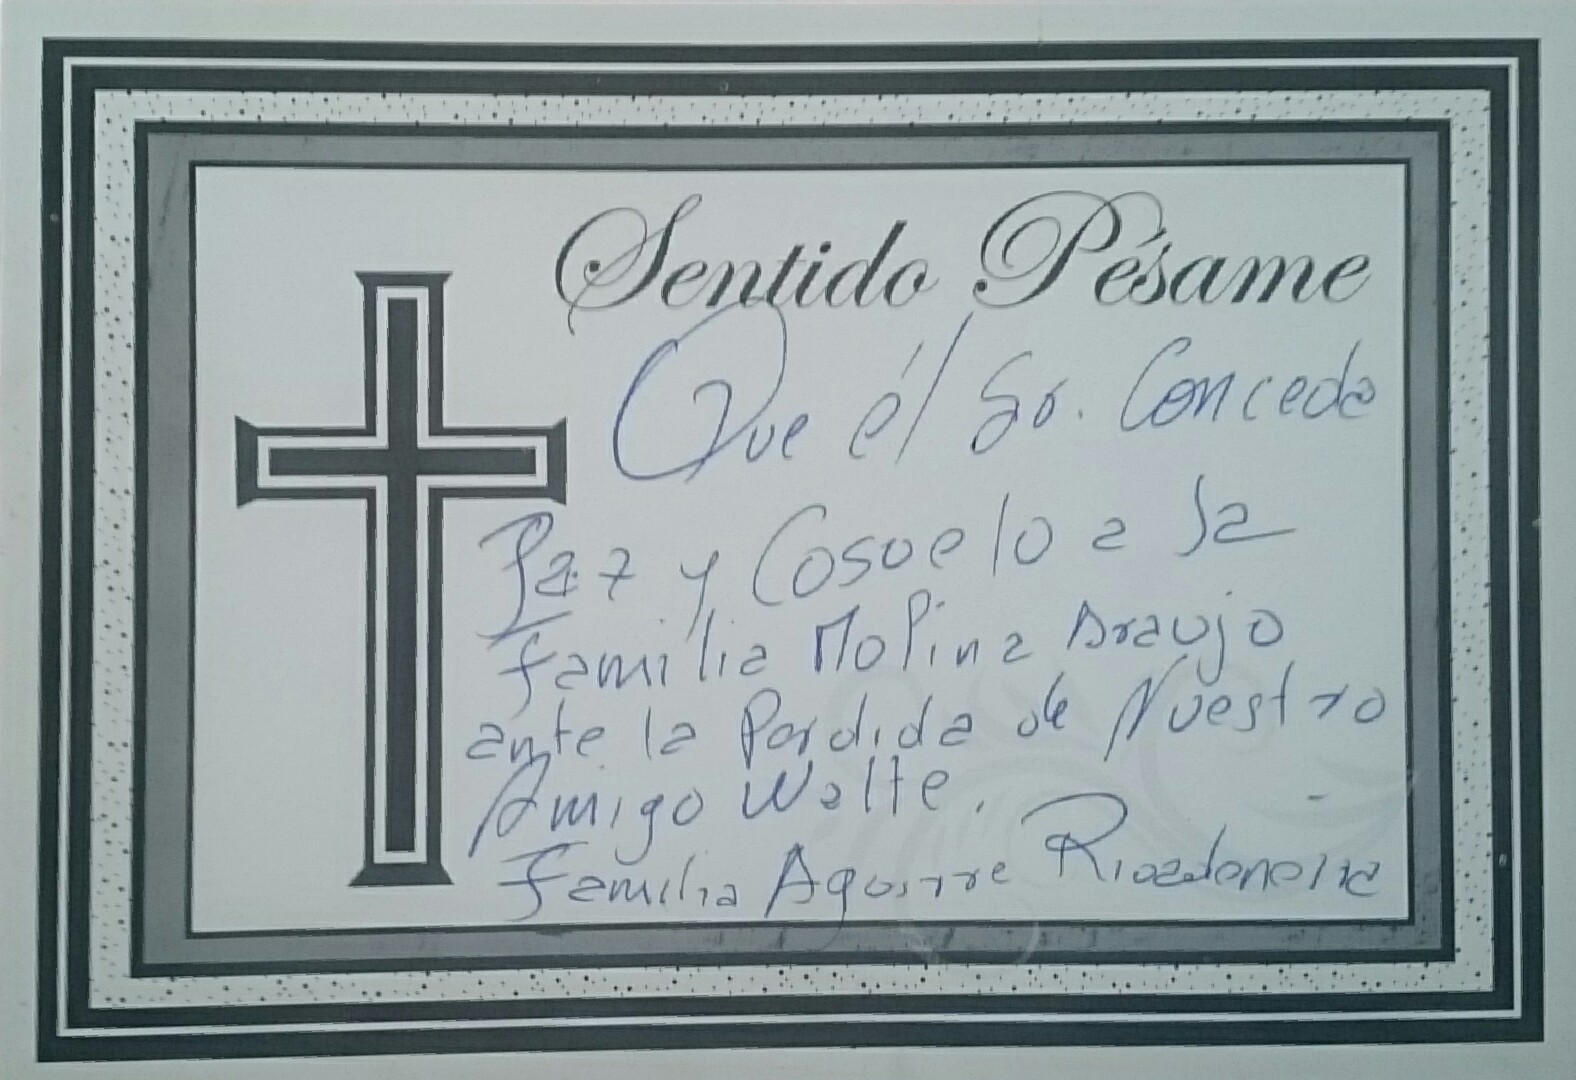 Sentido Pésame
Que él Sr. Conceda
Paz y Cosuelo a la
familia Molina Araujo
ante la Perdida de Nuestro
Amigo Walte.
Familia Aguirre Rivadeneira